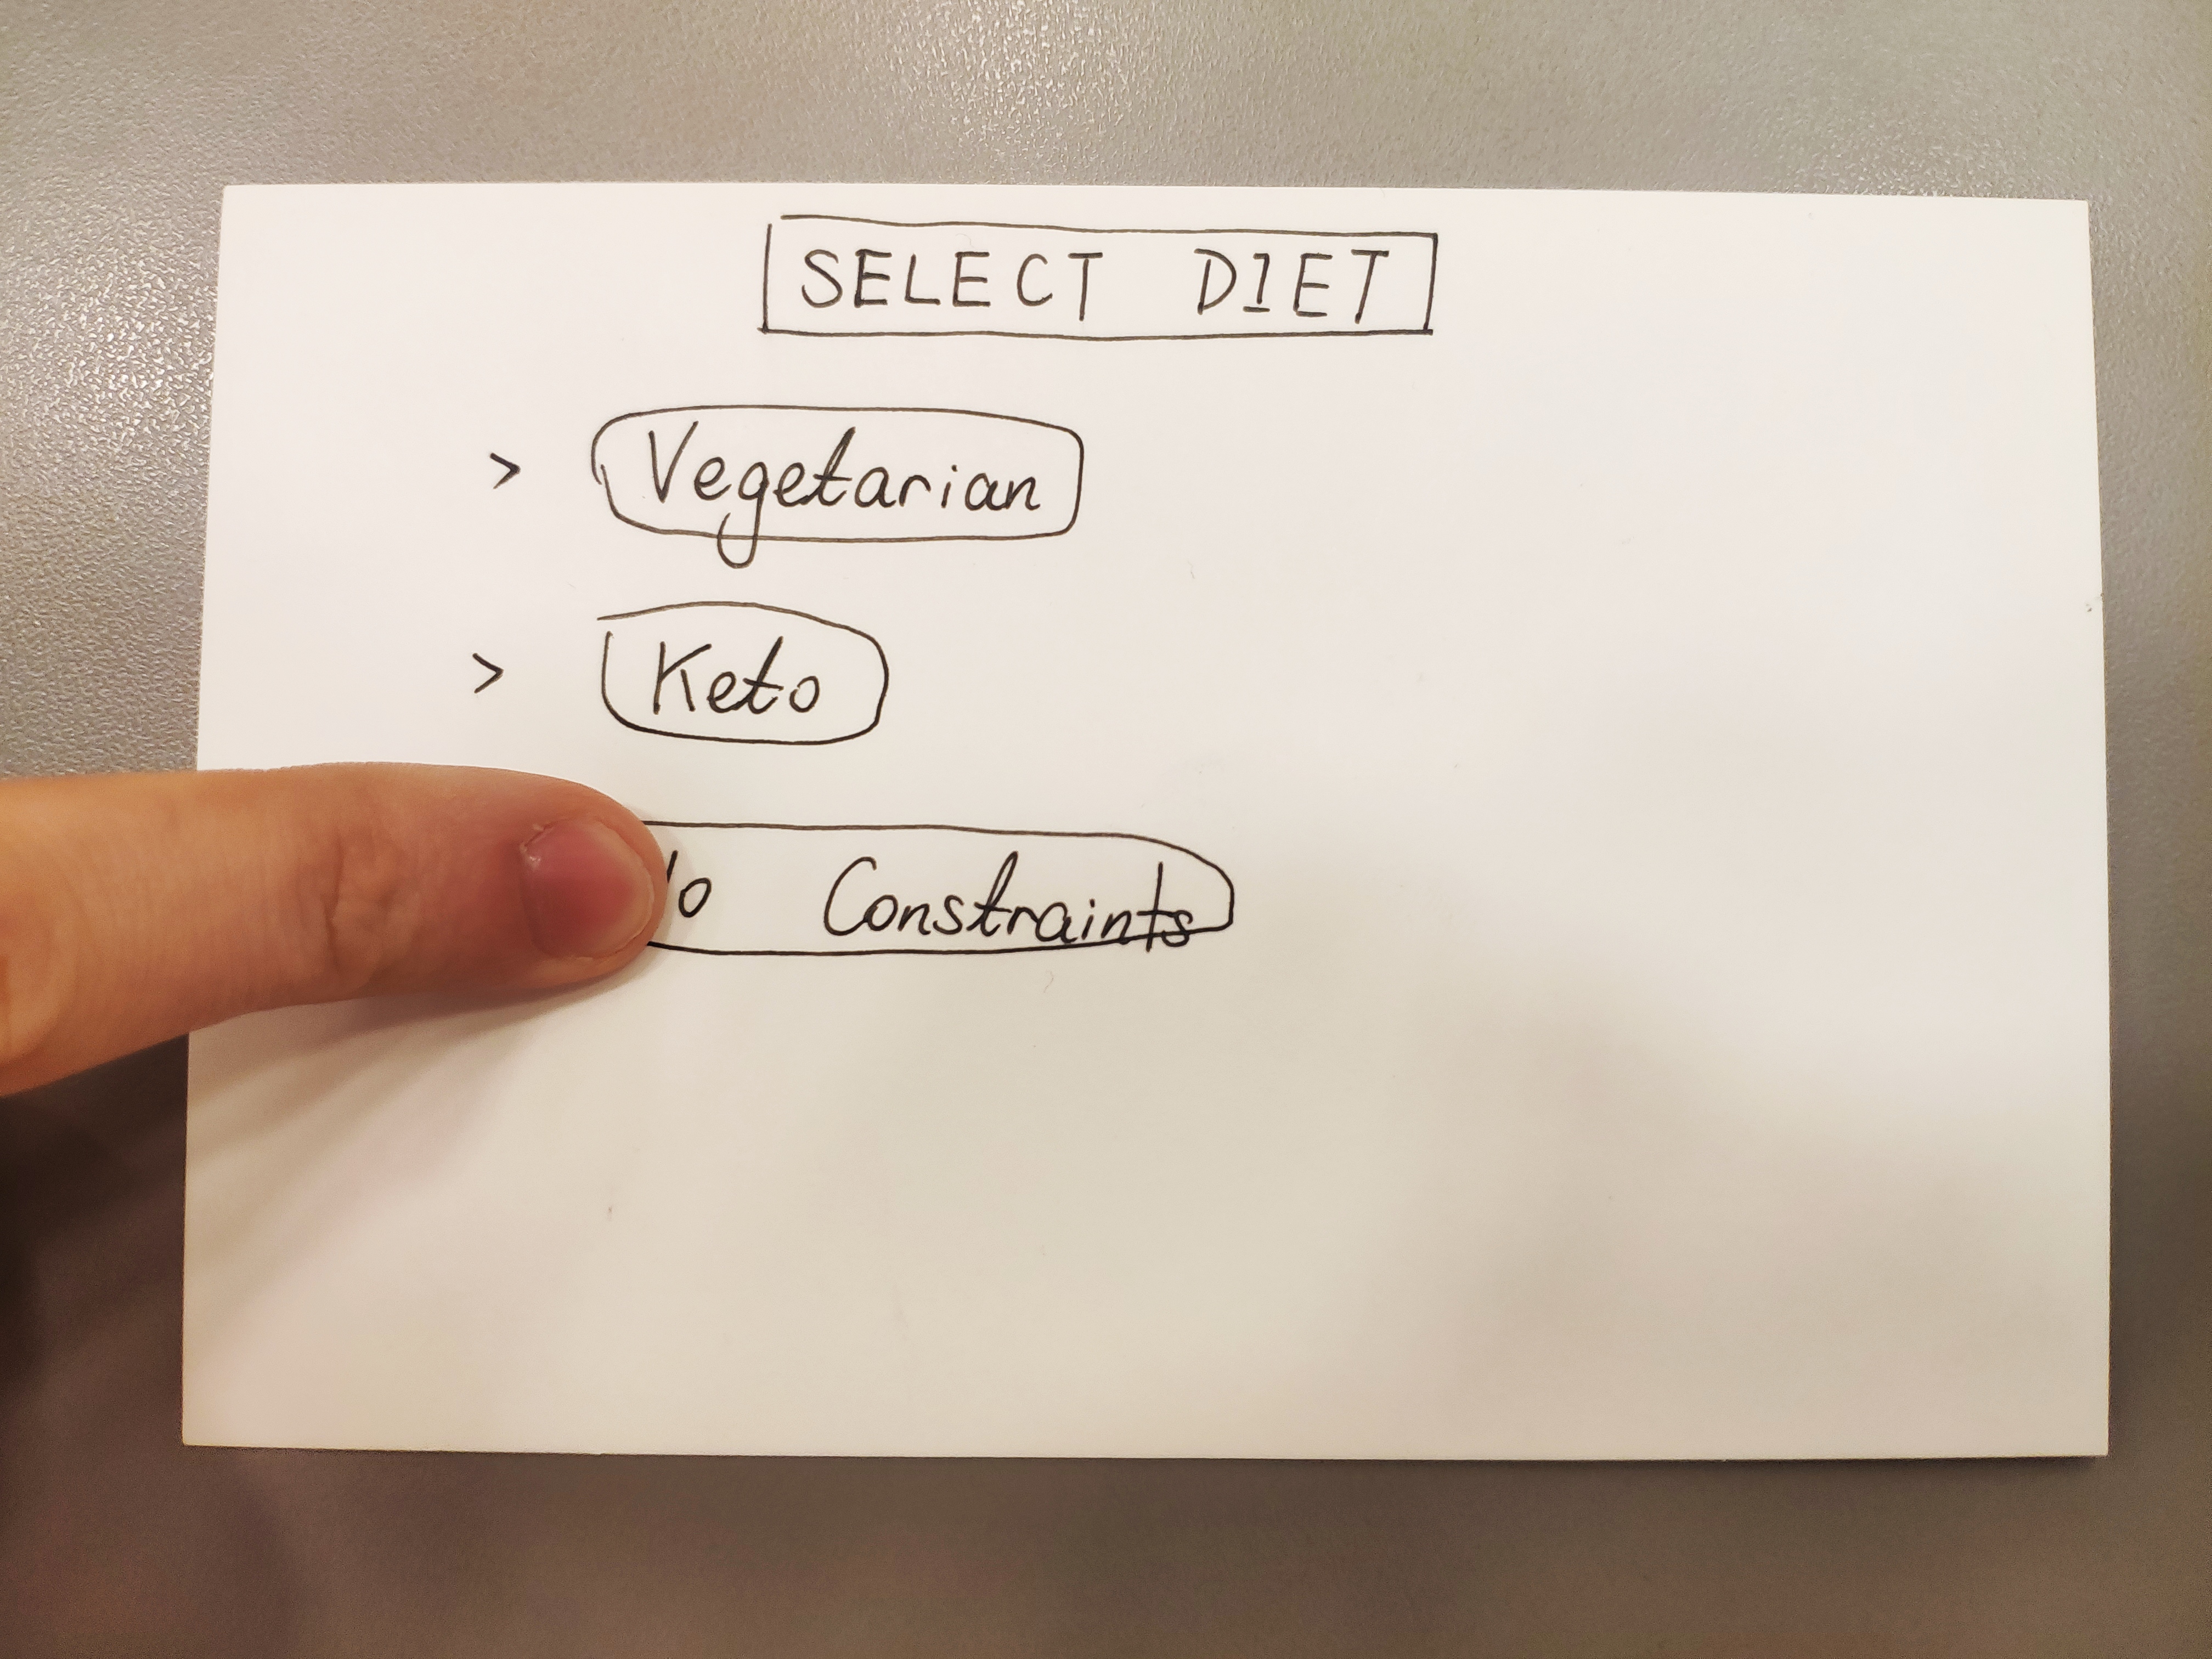 SELECT DIET
> Vegetarian
> Keto
Constraints